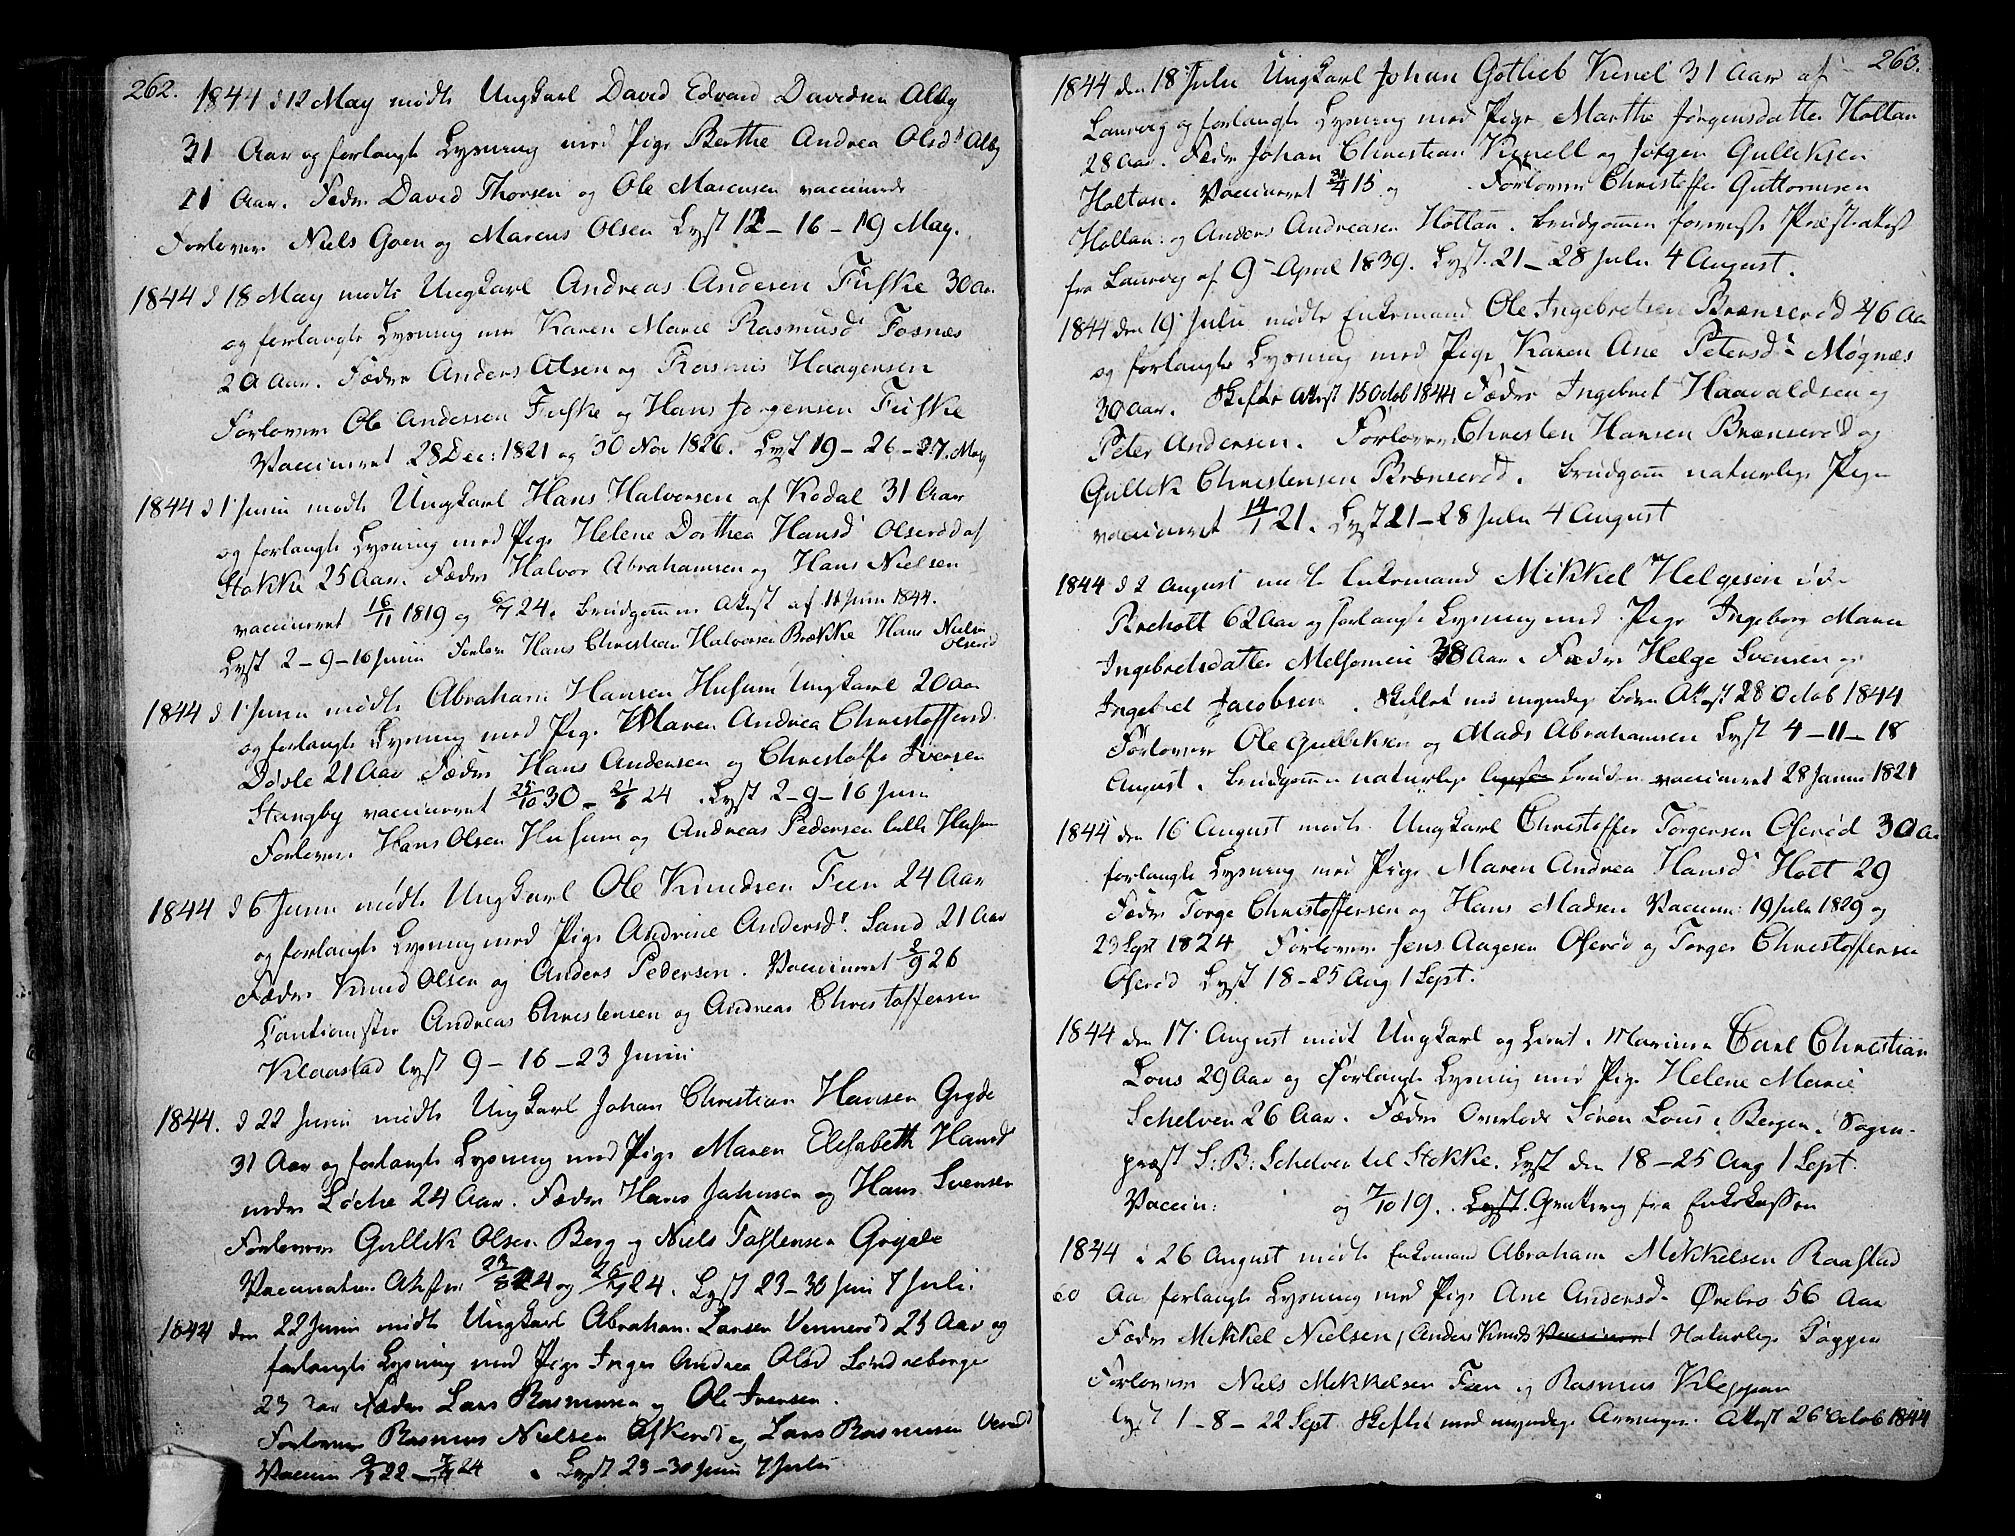 262.
1844 d 12 May mødte Ungkarl David Edvard Davidsen Alby
31 Aar og forlangte Lysning med Pige Berthe Andrea Olsdr Alby
21 Aar. Fædre David Thorsen og Ole Marcusen vaccinerede
Forlovere Niels Goen og Marcus Olsen Lyst 12 - 16 - 19 May.
1844 d 18 May mødte Ungkarl Andreas Andersen Fuske 30 Aar
og forlangte Lysning med Karen Marie Rasmusdr Fosnæs
20 Aar. Fædre Anders Olsen og Rasmus Haagensen
Forlovere Ole Anderssen Fuske og Hans Jørgensen Fuske
Vaccineret 28 Dec: 1821 og 30 Nov 1826. Lyst 19 - 26 - 27. May
1844 d 1 Junii mødte Ungkarl Hans Halvorsen af Kodal 31 Aar
og forlangte Lysning med Pige Helene Dorthea Hansdr Olserød af
Stokke 25 Aar. Fædre Halvor Abrahamsen og Hans Nielsen
vaccineret 16/11 1819 og 6/7 24. Brudgommens Attest af 11 Junii 1844.
Lyst 2 - 9 - 16 Junii Forlov Hans Christian Halvorsen Brække Hans Nielsen
Olserød
1844 d 1 Junii mødte Abraham Hansen Husum Ungkarl 20 Aar
og forlangte Lysning med Pige Maren Andrea Christoffersd.
Døsle 21 Aar Fædre Hans Andersen og Christoffer Iversen
Stangby vaccineret 25/10 30 - 21/8 24. Lyst 2 - 9 - 16 Junii
Forlovere Hans Olsen Husum og Andreas Pedersen lille Husum
1844 d 6 Junii mødte Ungkarl Ole Knudsen Feen 24 Aar
og forlangte Lysning med Pige Andrine Andersdr. Sand 21 Aar
Fædre Knud Olsen og Anders Pedersen. Vaccineret 2/9 26
Cautionister Andreas Christensen og Andreas Christoffersen
Klaastad lyst 9 - 16 - 23 Junii
1844. d 22 Junii mødte Ungkarl Johan Christian Hansen Gryde
31 Aar og forlangte Lysning med Pige Maren Elisabeth Hansdr
nedre Løche 24 Aar. Fædre Hans Johnsen og Hans Svensen
Forlovere Gullik Olsen Berg og Niels Tostensen Gryde
Vaccinations Attester 23/8 24 og 26/9 24. Lyst 23 - 30 Juni 7 Juli.
1844 den 22 Junii mødte Ungkarl Abraham Larsen Vennerød 25 Aar og
forlangte Lysning med Pige Inger Andrea Olsd Søndreberge
23 Aar Fædre Lars Rasmussen og Ole Iversen.
Forlovere Rasmus Nielsen Askerød og Lars Rasmussen
Vaccin 22 - 24. Lyst 23 - 30 Junii 7 Julii
263.
1844 den 18 Julii Ungkarl Johan Gotlieb Kinel 31 Aar af
Laurvig og forlangte Lysning med Pige Marthe Jørgensdatter Holtan
28 Aar. Fædre Johan Christian Kinell og Jørgen Gulliksen
Holtan. Vaccineret 15 og Forlovere Christoffer Guttormsen
Holtan og Anders Andreasen Holtan. Brudgommen foreviste Præsteattest
fra Laurvig af 9 April 1839. Lyst. 21 - 28 Julii 4 August.
1844 den 19 Julii mødte Enkemand Ole Ingebretsen Brænserød 46 Aar
og forlangte Lysning med Pige Karen Ane Petersdr Møgnæs
30 Aar. Skifte Attest 15 Octob 1844 Fædre Ingebret Haavaldsen og
Peter Andersen. Forlovere Christen Hansen Brænserød og
Gullik Christensen Brænserød. Brudgom naturlige Pigen
vaccineret 14/1 21. Lyst 21 - 28 Julii 4 August
1844 d 2 August mødte Enkemand Mikkel Helgesen
Preholt 62 Aar og forlangte Lysning med Pige Ingeborg Maria
Ingebretsdatter Melsomvie 38 Aar. Fædre Helge Svensen og
Ingebret Jacobsen. Skiftet med myndige Børn Attest 28 Octob 1844
Forlovere Ole Gulliksen og Mads Abrahamsen Lyst 4 - 11 - 18
August. Brudgommen naturlige Bruden vaccineret 28 Junii 1821
1844 den 16 August mødte Ungkarl Christoffer Torgersen Oserød 30 Aar
forlangte Lysning med Pige Maren Andrea Hansdr Holt 29
Fædre Torge Christoffersen og Hans Madsen Vaccin: 19 Julii 1829 og
23 Sept 1824 Forlovere Jens Aagesen Oserød og Torger Christoffersen
Oserød Lyst 18 - 25 Aug 1 Sept.
1844 den 17 August mødt Ungkarl og Lieut. i Marinen Carl Christian
Lous 29 Aar og forlangte Lysning med Pige Helene Marie
Schelven 26 Aar. Fædre Overlods Søren Lous i Bergen. Sogne-
præst S: B: Schelven til Stokke. Lyst den 18 - 25 Aug 1 Sept.
Vaccin: og 7/10 19. Lyst. Qvittering fra Enkekassen
1844 d 26 August mødte Enkemand Abraham Mikkelsen Raastad
60 Aar forlangte Lysning med Pige Ane Andersdr Ørebro 56 Aar
Fædre Mikkel Nielsen, Anders Knuds Vaccineret Naturlige Kopper
Forlovere Niels Mikkelsen Feen og Rasmus Kleppan
Lyst 1 - 8 - 22 Sept. Skiftet med myndige Arvinger. Attest 26 Octob 1844